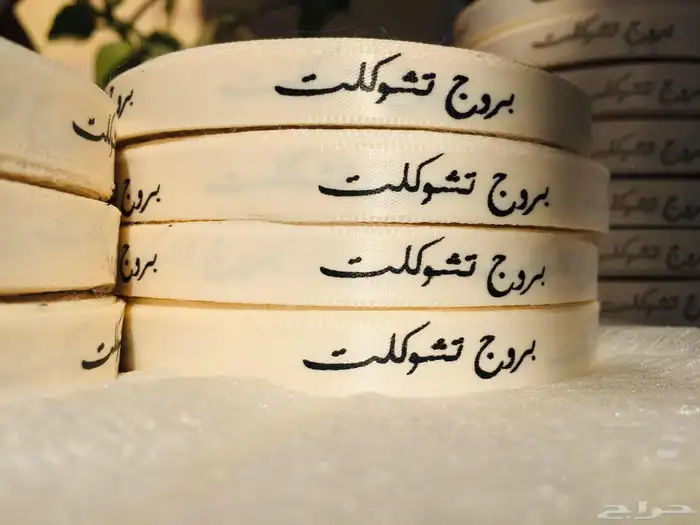 بروج تشوكلت
بروج تشوكلت
بروج تشوكلت
بروج تشوكلت
حراج